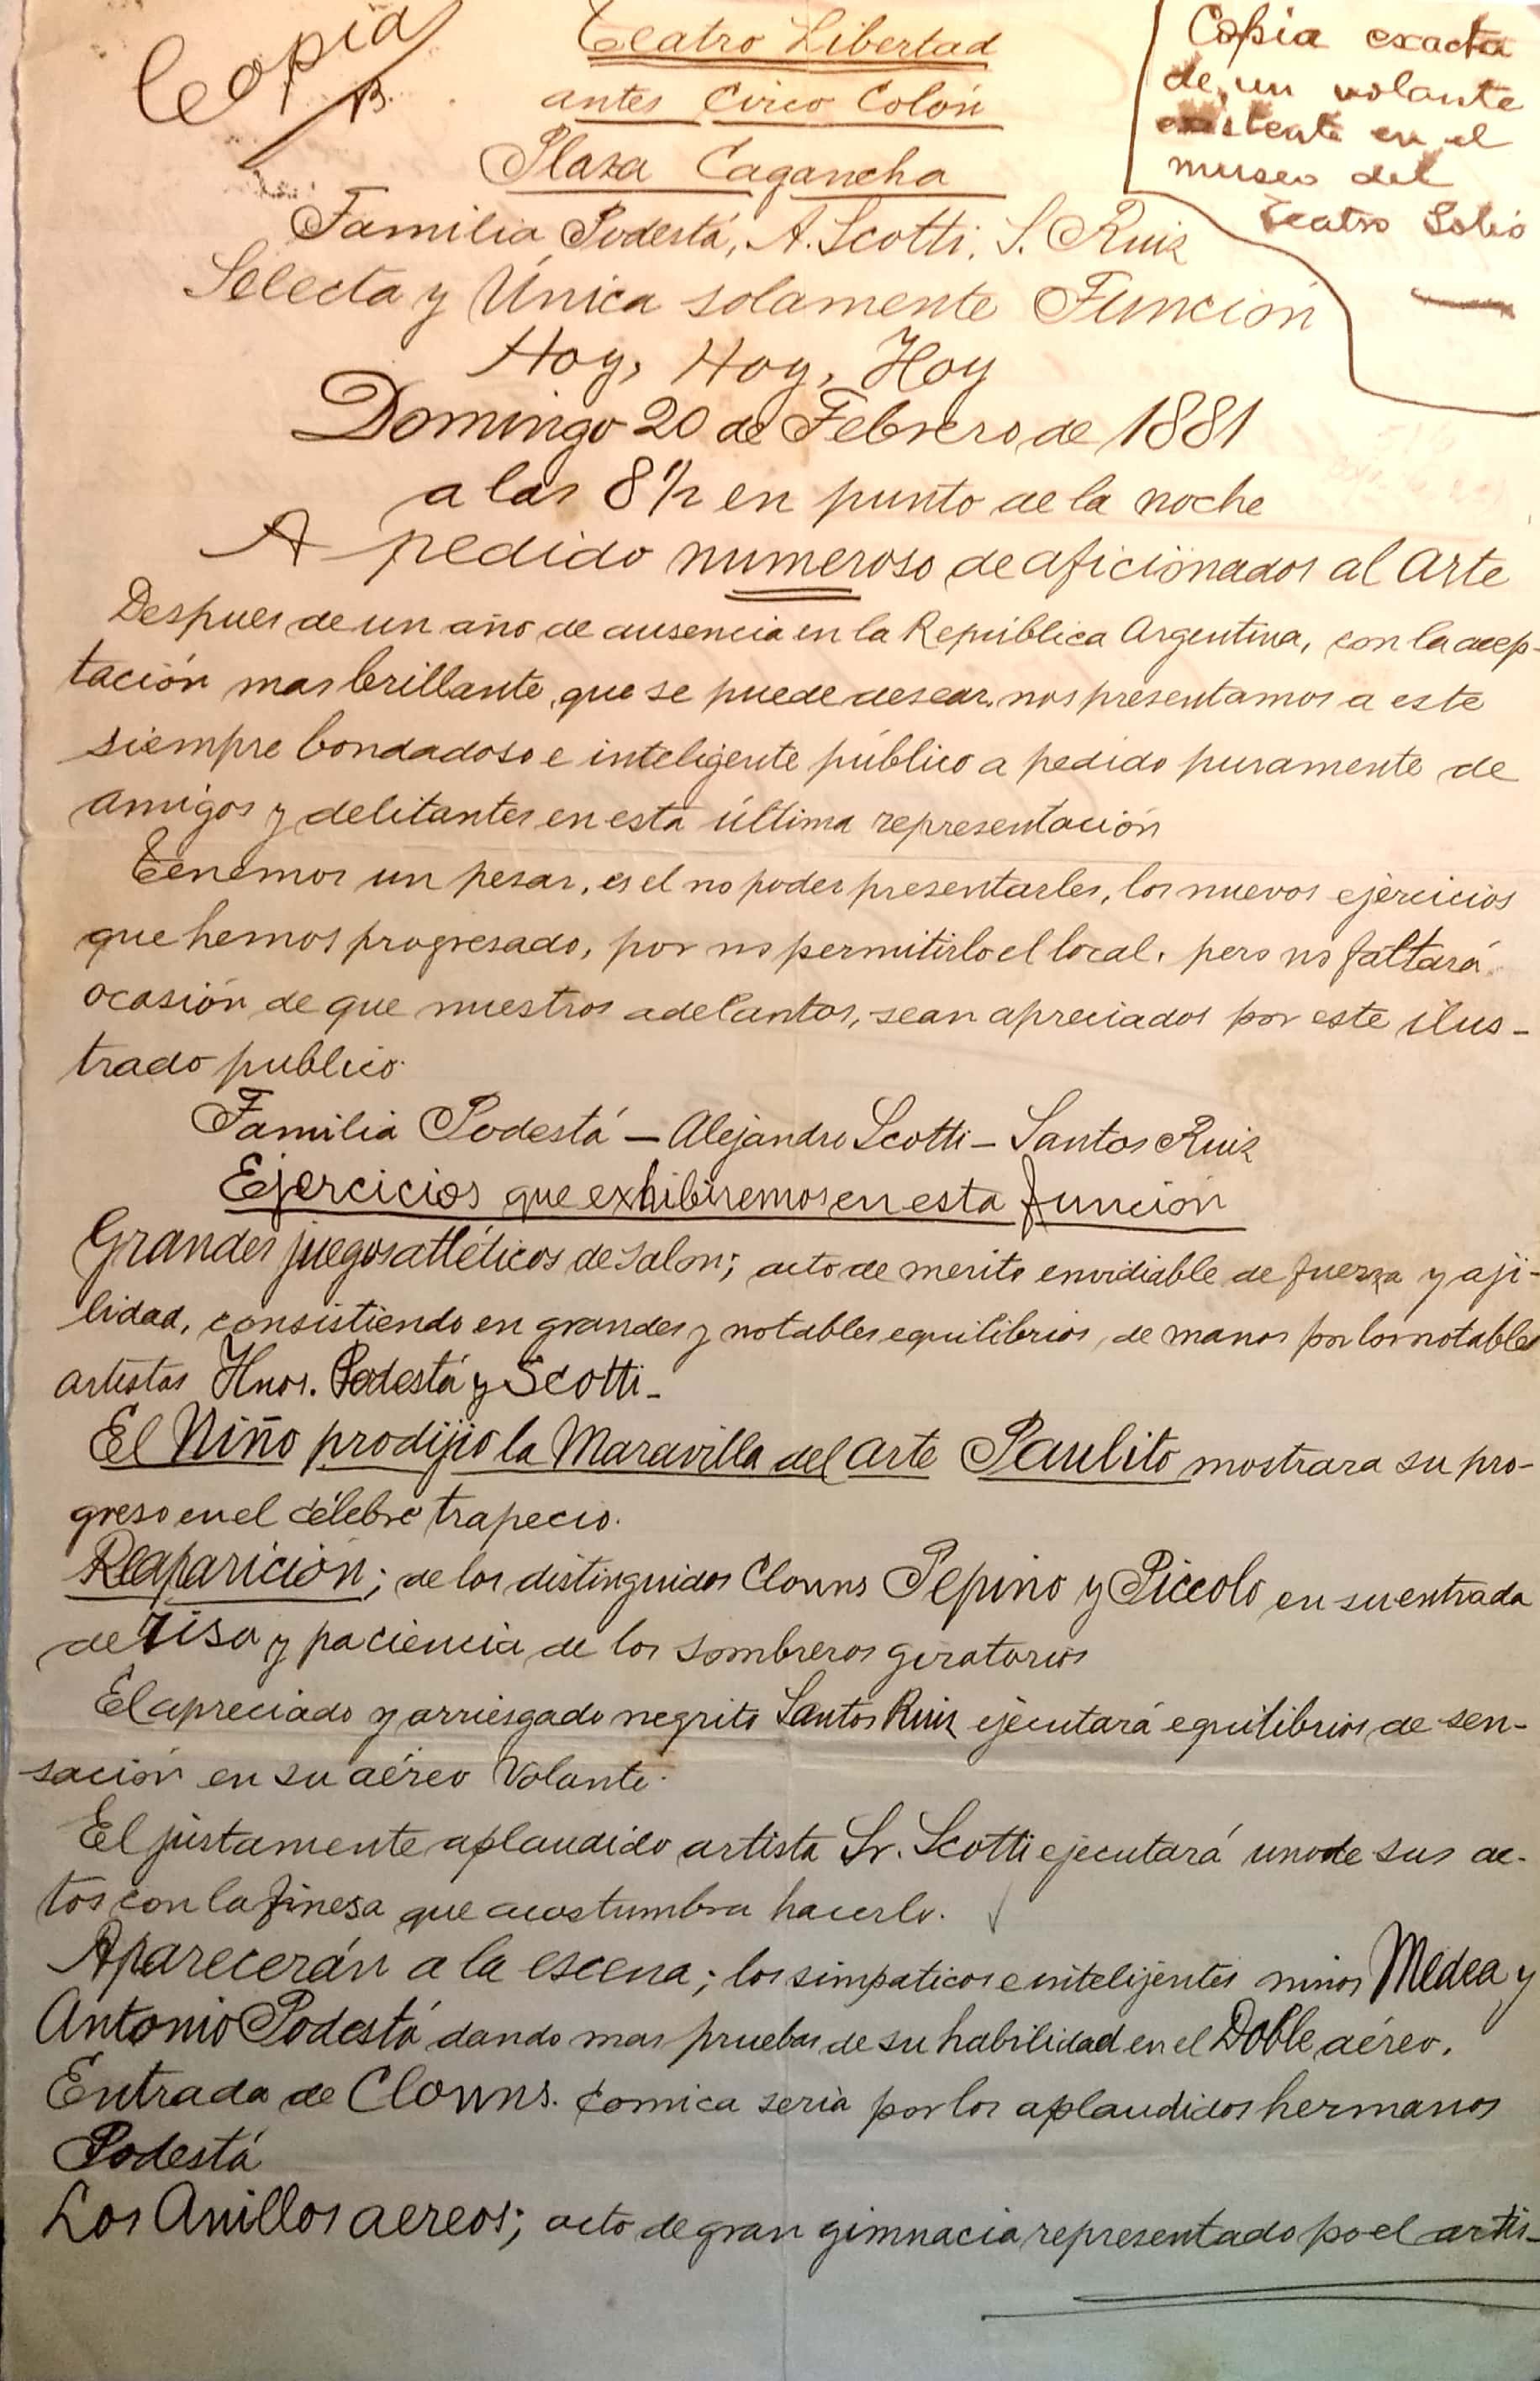 Copia
B.
Teatro Libertad
antes Circo Colón
Plaza Cagancha
Copia exacta
de un volante
existente en el
museo del
Teatro Solis
Familia Podestá, A. Scotti, S. Ruiz
Selecta y Única solamente Función
Hoy, Hoy, Hoy
Domingo 20 de Febrero de 1881
a las 8 1/2 en punto de la noche
A pedido numeroso de aficionados al Arte
Despues de un año de ausencia en la República Argentina, con la acep-
tación mas brillante, que se puede desear, nos presentamos a este
siempre bondadoso e inteligente público a pedido puramente de
amigos y delitantes en esta última representación
Tenemos un pesar, es el no poder presentarles, los nuevos ejercicios
que hemos progresado, por no permitirlo el local, pero no faltará
ocasión de que nuestros adelantos, sean apreciados por este ilus-
trado publico.
Familia Podestá - Alejandro Scotti - Santos Ruiz
Ejercicios que exhibiremos en esta función
Grandes juegos atléticos de salon; acto de merito envidiable de fuerza y aji-
lidad, consistiendo en grandes y notables equilibrios, de manos por los notables
artistas Hnos. Podestá y Scotti-
El Niño prodijio la Maravilla del arte Paulito mostrara su pro-
greso en el célebre trapecio.
Reaparición; de los distinguidos Clowns Pepino y Piccolo en su entrada
de risa y paciencia de los sombreros giratorios
El apreciado y arriesgado negrito Santos Ruiz ejecutará equilibrios de sen-
sación en su aéreo Volante.
El justamente aplaudido artista Sr. Scotti ejecutará uno de sus ac-
tos con la finesa que acostumbra hacerlo.
Aparecerán a la escena; los simpaticos e intelijentes niños Medea y
Antonio Podestá dando mas pruebas de su habilidad en el Doble aéreo.
Entrada de Clowns. Comica seria por los aplaudidos hermanos
Podestá
Los Anillos aereos; acto de gran gimnacia representado po el artis-